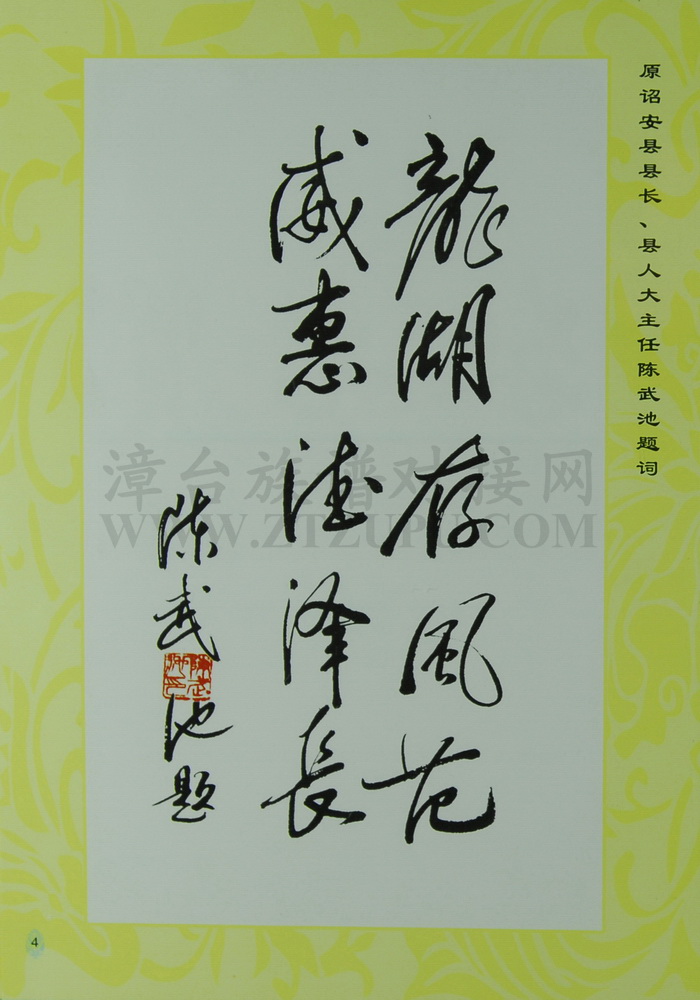 原诏安县县长、县人大主任陈武池题词
龍湖存风范
威惠德泽長
陈武池题
漳台族谱对接网
WWW.ZTZUPU.COM
4